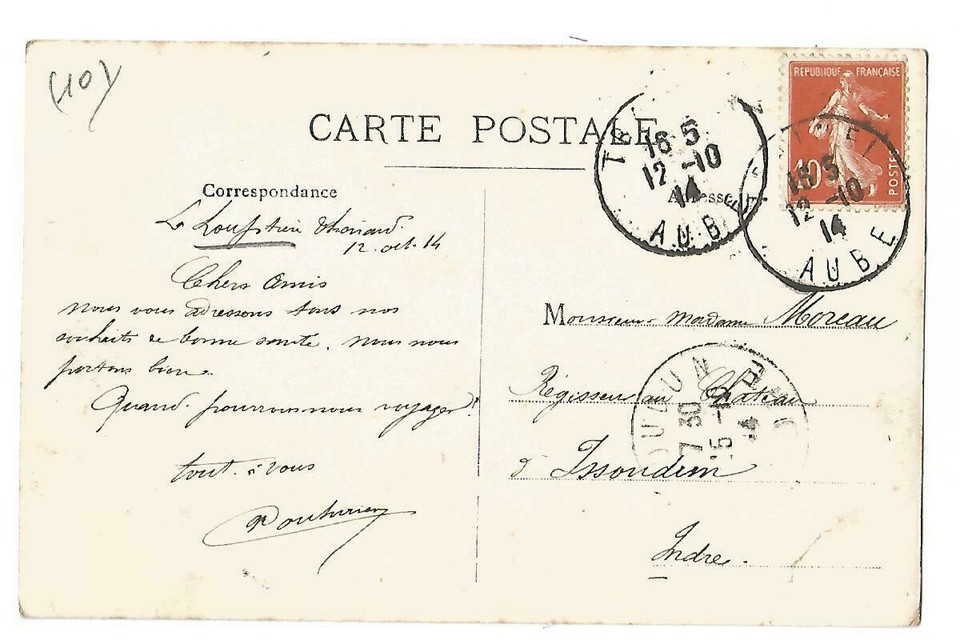 (10)
CARTE POSTALE
Correspondance
La Thoriard
12 oct. 14
Chers Amis
nous vous adressons tous nos
souhaits de bonne santé. nous nous
portons bien.
Quand pourrons-nous voyager!
tout à vous
Adresse
RÉPUBLIQUE FRANÇAISE
10
POSTES
16 5
12 -10
14
AUBE
16 5
12 -10
14
AUBE
Monsieur Madame Moreau
Régisseur au Château
d'Issoudun
Indre.
7 30